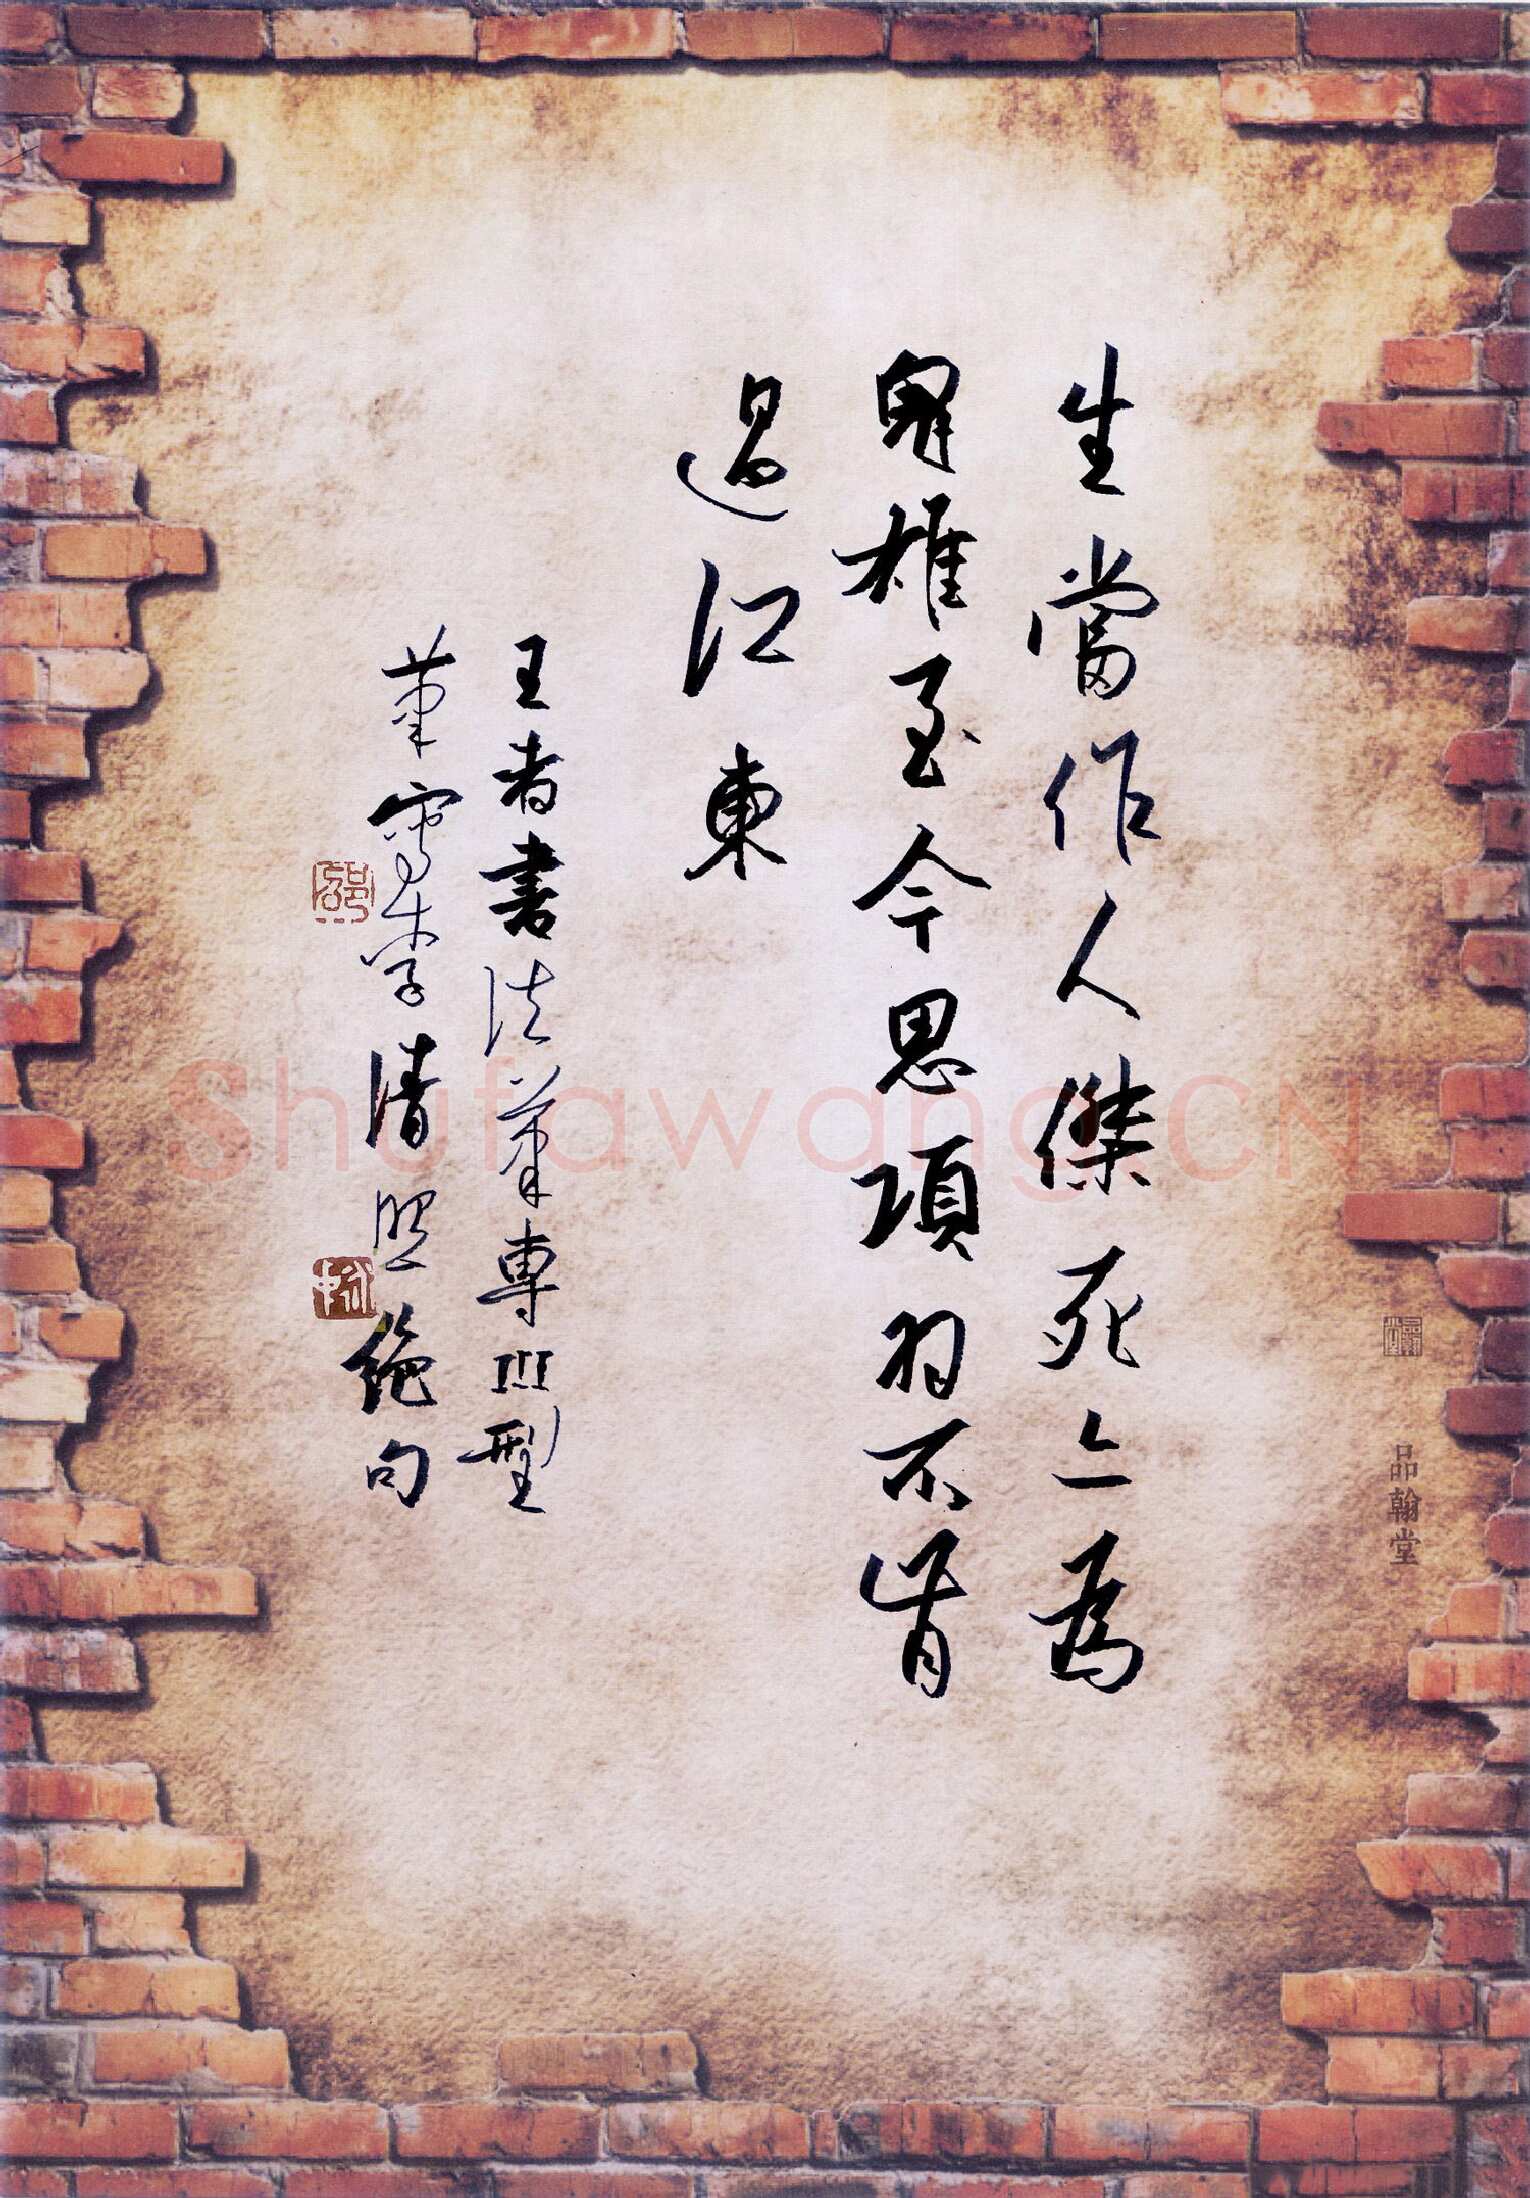 生當作人傑死亦為
鬼雄至今思項羽不肯
過江東
王者書法筆專III型
筆寫李清照絕句
品翰堂
Shufawang.CN